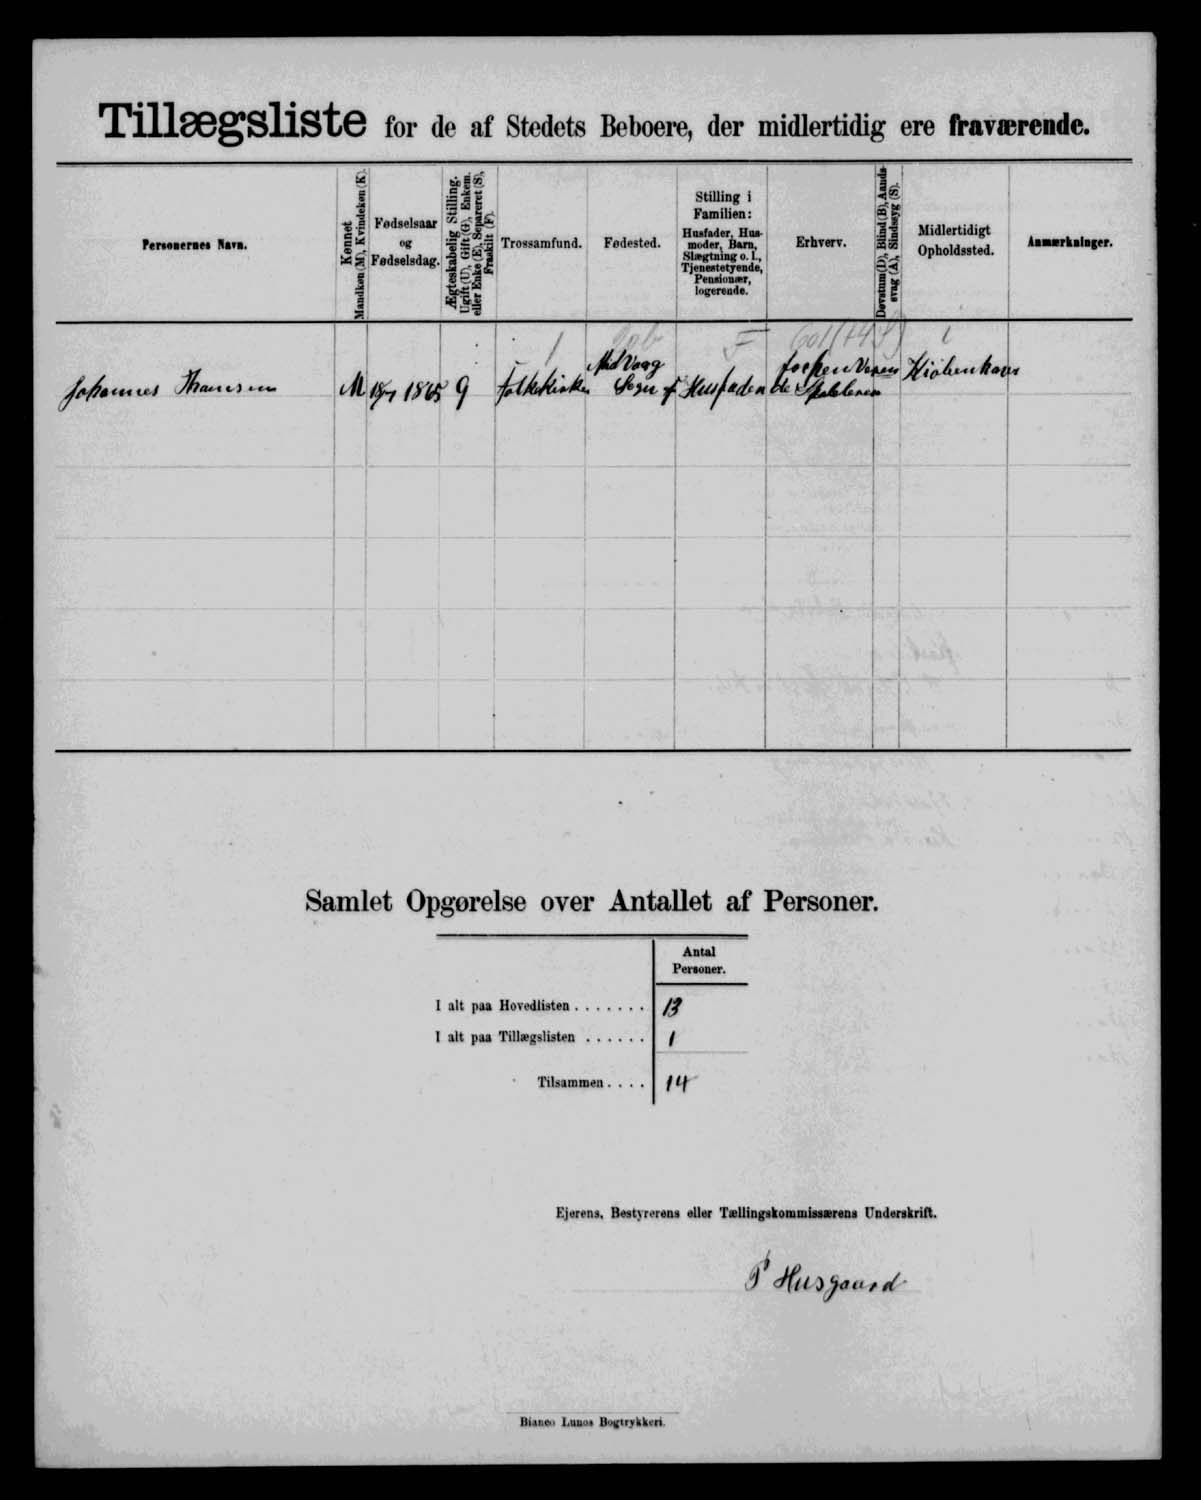 Tillægsliste for de af Stedets Beboere, der midlertidig ere fraværende.
Personernes Navn.
Kønnet
Mandkøn (M), Kvindekøn (K).
Fødselsaar
og
Fødselsdag.
Ægteskabelig Stilling.
Ugift (U), Gift (G), Enkem.
eller Enke (E), Separeret (S),
Fraskilt (F).
Trossamfund.
Fødested.
Stilling i
Familien:
Husfader, Hus-
moder, Barn,
Slægtning o. l.,
Tjenestetyende,
Pensionær,
logerende.
Erhverv.
Døvstum (D), Blind (B), Aands-
svag (A), Sindssyg (S).
Midlertidigt
Opholdssted.
Anmærkninger.
1 F
Johannes M 18/7 1865 g Folkekirken
Mid Vaag
Sogn
Husfader
Kiøbenhavn
Samlet Opgørelse over Antallet af Personer.
Antal
Personer.
I alt paa Hovedlisten . . . . . . . 13
I alt paa Tillægslisten . . . . . . 1
Tilsammen . . . . 14
Ejerens, Bestyrerens eller Tællingskommissærens Underskrift.
P Husgaard
Bianco Lunos Bogtrykkeri.